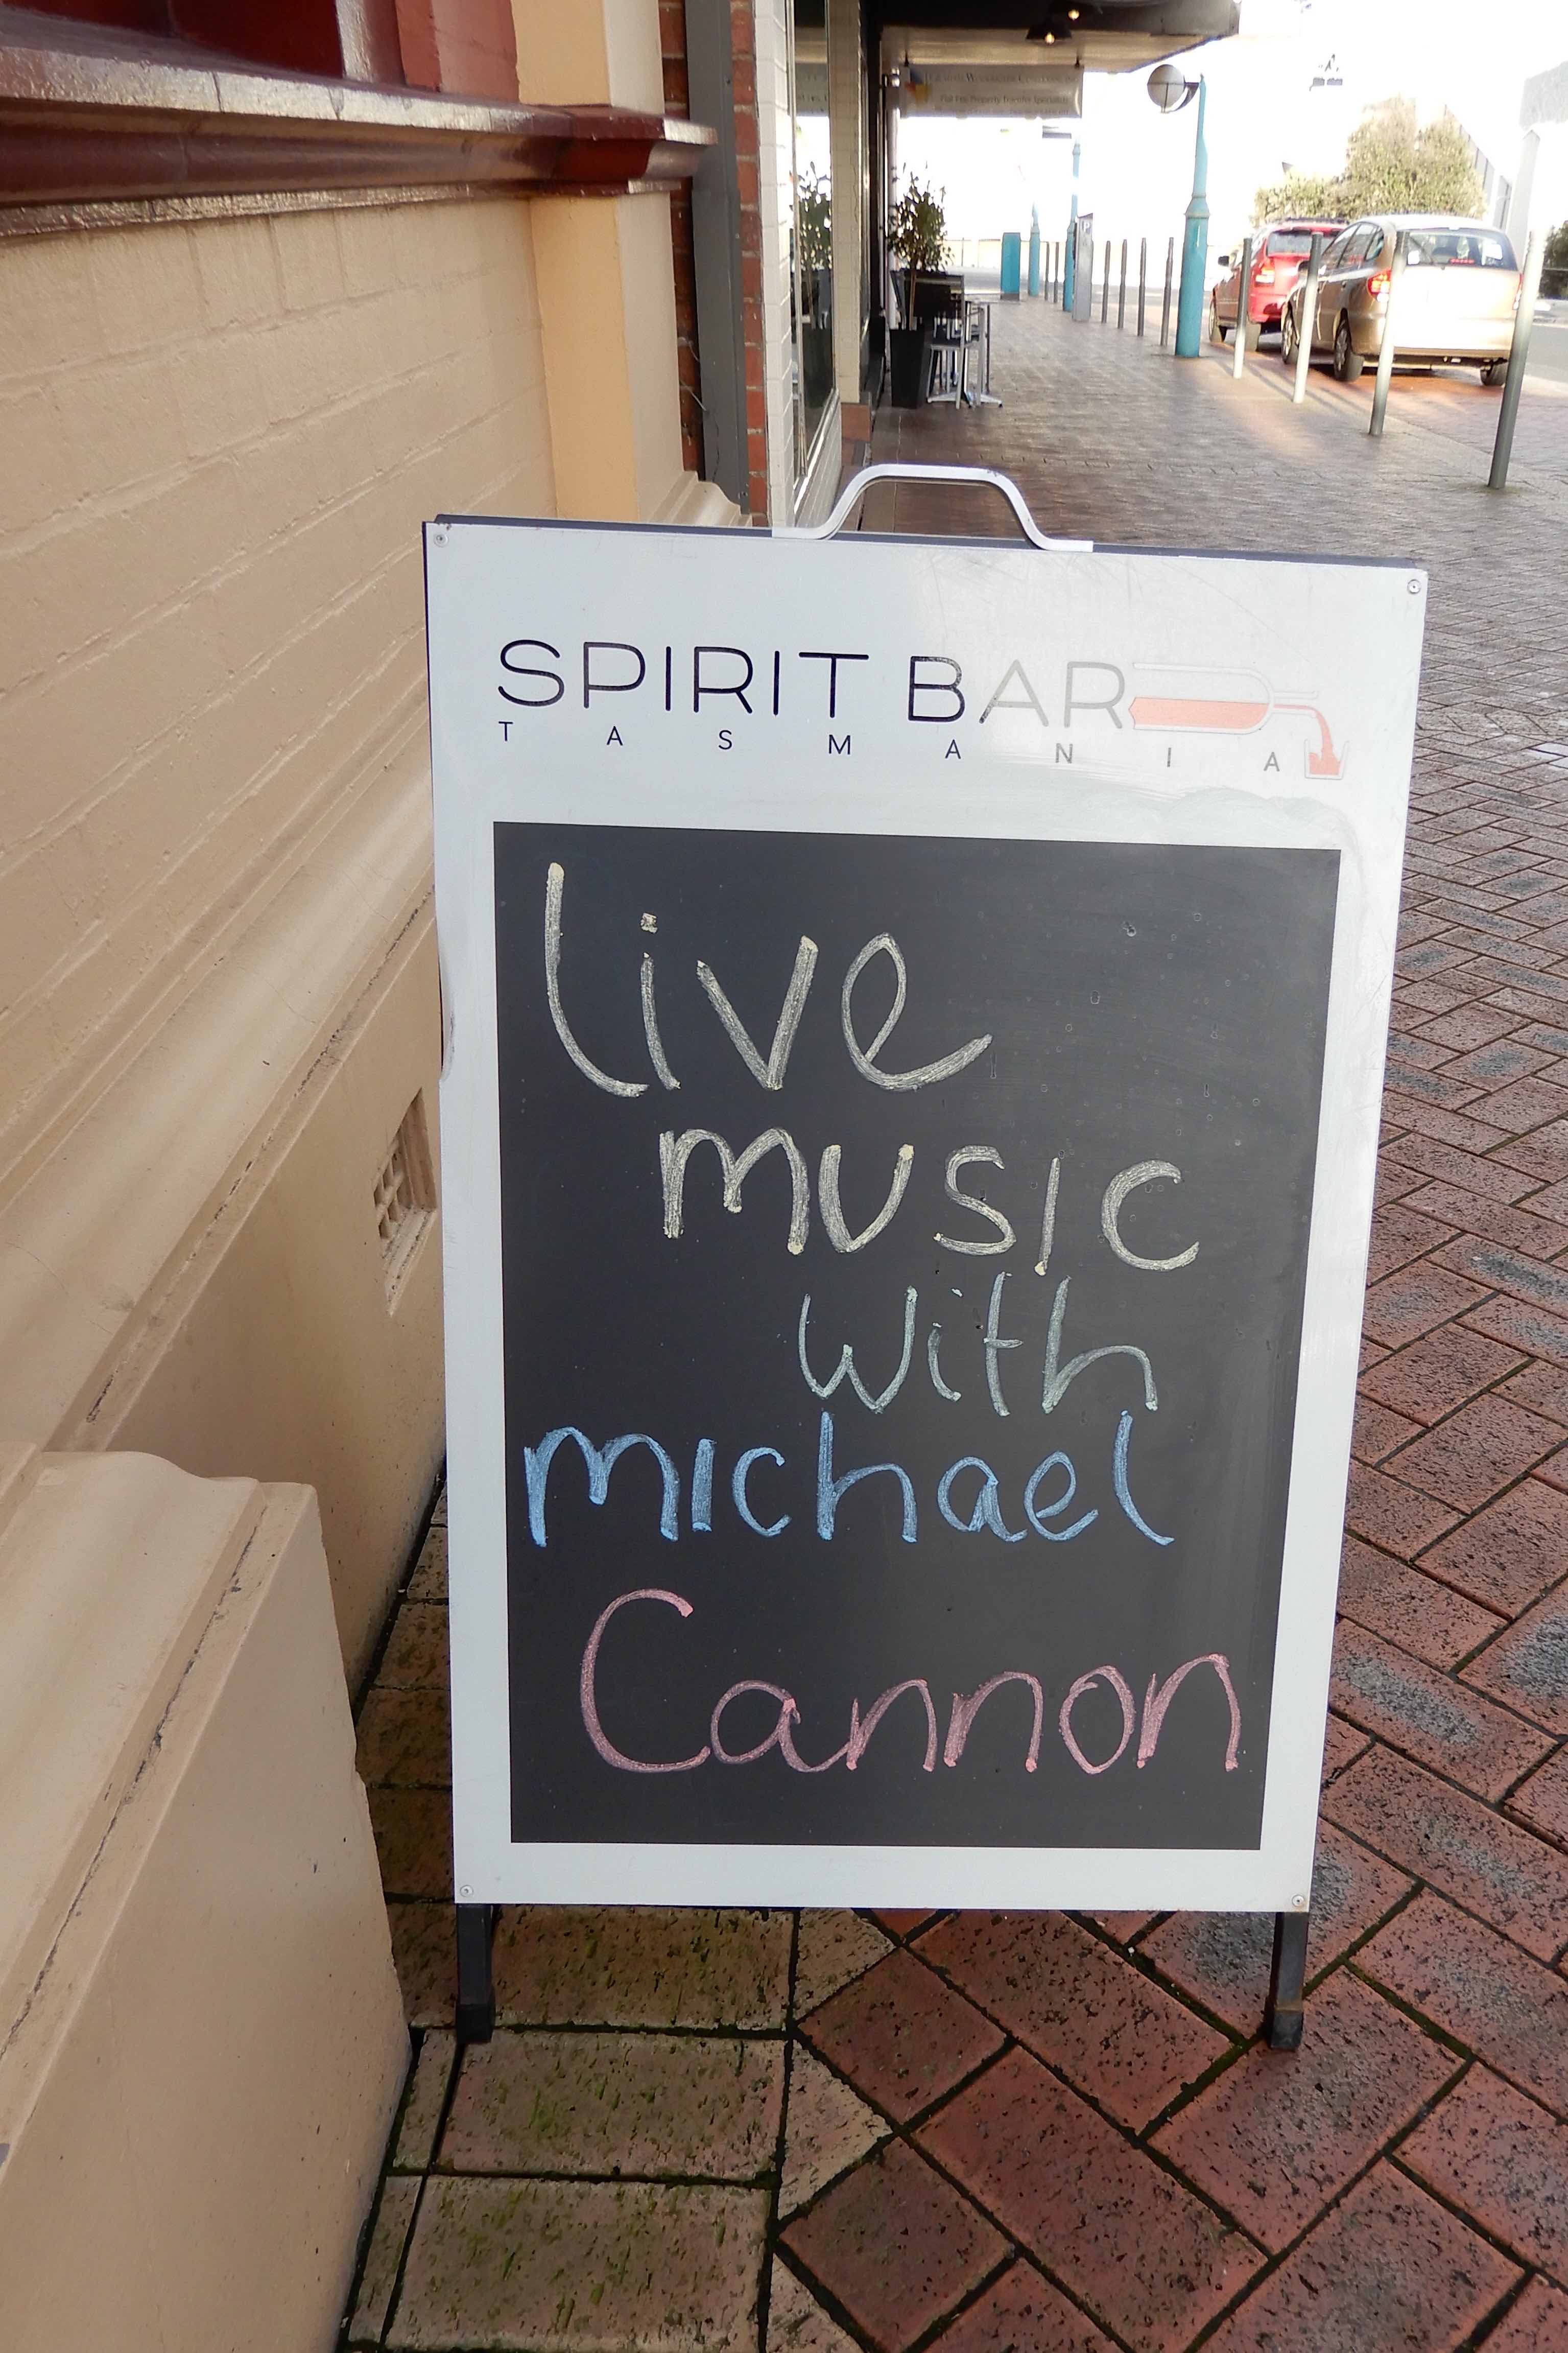 SPIRIT BAR
TASMANIA
live
music
with
michael
Cannon
P